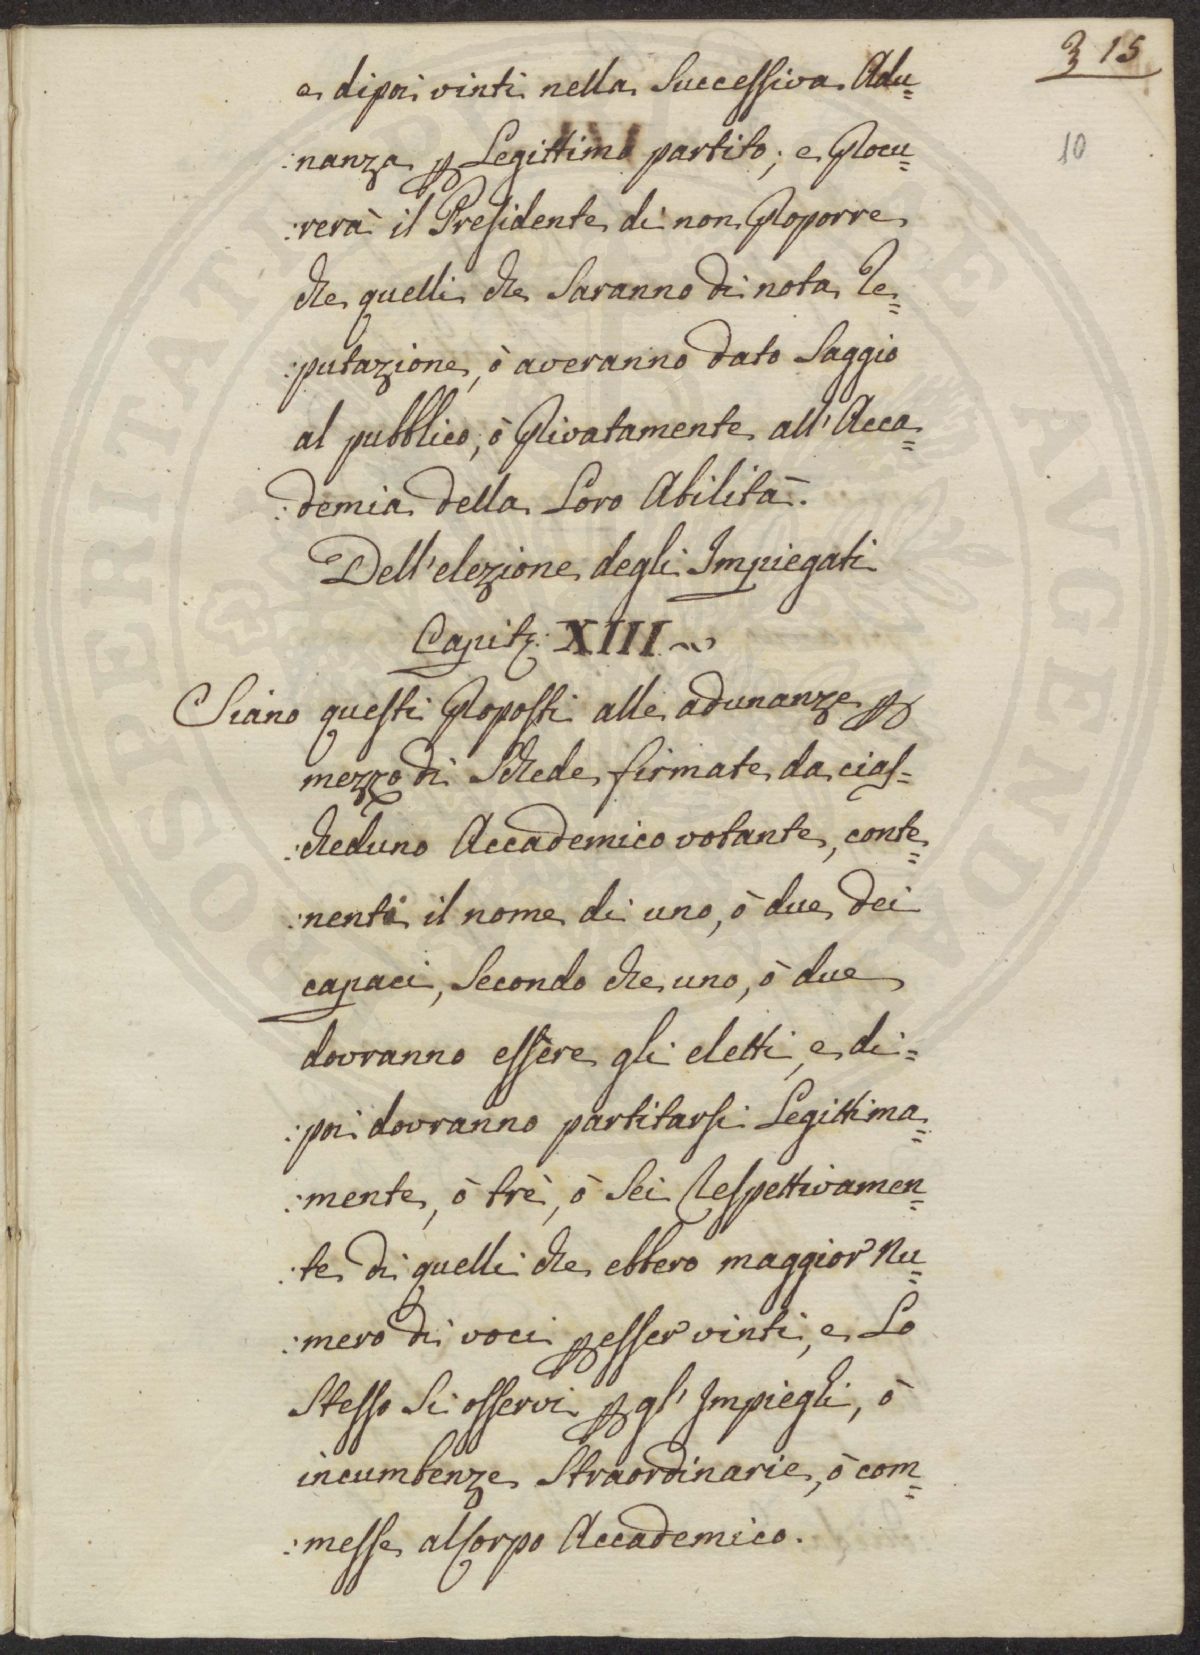 315
10
e dipoi vinti nella Successiva Adu=
:nanza p Legittimo partito; e Procu=
:rerà il Presidente di non Proporre
che quelli che Saranno di nota Re=
:putazione, ò averanno dato Saggio
al pubblico, ò Privatamente all'Acca=
:demia della Loro Abilità.
Dell'elezione degli Impiegati
Capit.: XIII.
Siano questi Proposti alle adunanze p
mezzo di Schede firmate da cias=
:cheduno Accademico votante, conte=
:nenti il nome di uno, ò due dei
capaci, Secondo che uno, ò due
dovranno essere gli eletti, e di=
:poi dovranno partitarsi Legittima=
:mente, ò trè, ò Sei Respettivamen=
:te di quelli che ebbero maggior Nu=
:mero di voci p esser vinti, e Lo
Stesso Si osservi p gl'Impieghi, ò
incumbenze Straordinarie, ò com=
:messe al Corpo Accademico.
PROSPERITATI PUBLICAE AVGENDAE